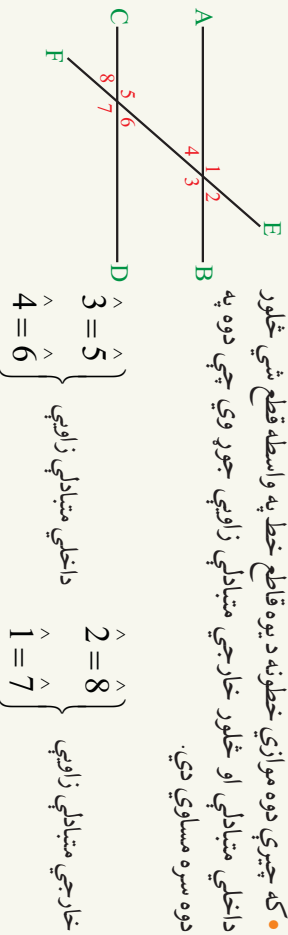 • که چېري دوه موازي خطونه د يوه قاطع خط په واسطه قطع شي څلور
داخلي متبادلې او څلور خارجي متبادلې زاويې جوړ وي چې دوه په
دوه سره مساوي دي.
A
B
C
D
E
F
1
2
3
4
5
6
7
8
3̂ = 5̂
4̂ = 6̂
داخلي متبادلې زاويې
2̂ = 8̂
1̂ = 7̂
خارجي متبادلې زاويې